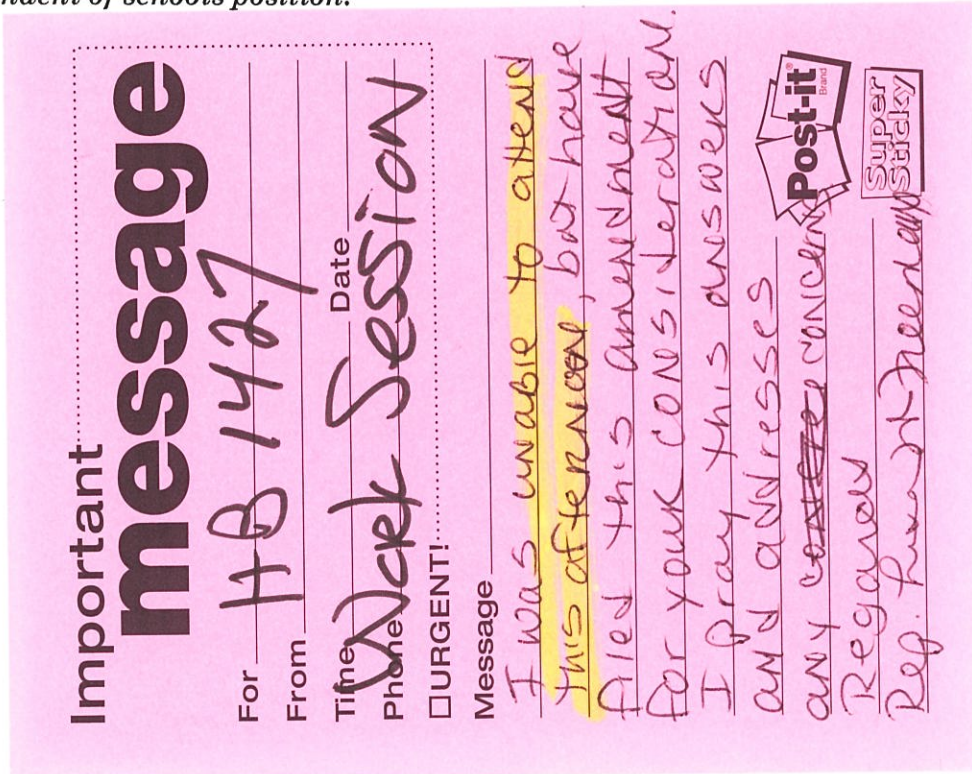 ndent of schools position.
Important
message
For HB 1427
From
Time Date
Work Session
Phone
☐URGENT!
Message
I was unable to attend
this afternoon, but have
filed this amendment
for your consideration.
I pray this answers
and addresses
any concerns
Regards
Rep. Freeman
Post-it®
Brand
Super
Sticky